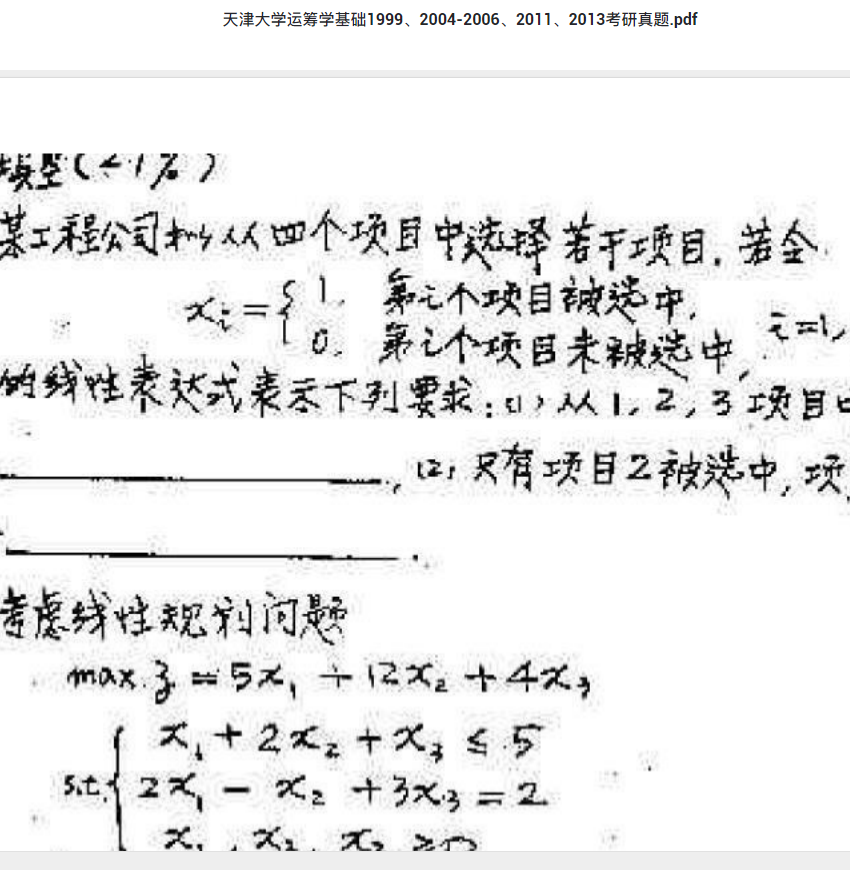 天津大学运筹学基础1999、2004-2006、2011、2013考研真题.pdf
填空(21%)
某工程公司拟从四个项目中选择若干项目,若令
x_i = { 1, 第i个项目被选中,
0, 第i个项目未被选中, i=1,
的线性表达式表示下列要求:(1)从1,2,3项目中
,(2)只有项目2被选中,项
.
考虑线性规划问题
max z = 5x₁ + 12x₂ + 4x₃
x₁ + 2x₂ + x₃ ≤ 5
s.t. { 2x₁ - x₂ + 3x₃ = 2
x₁, x₂, x₃ ≥ 0